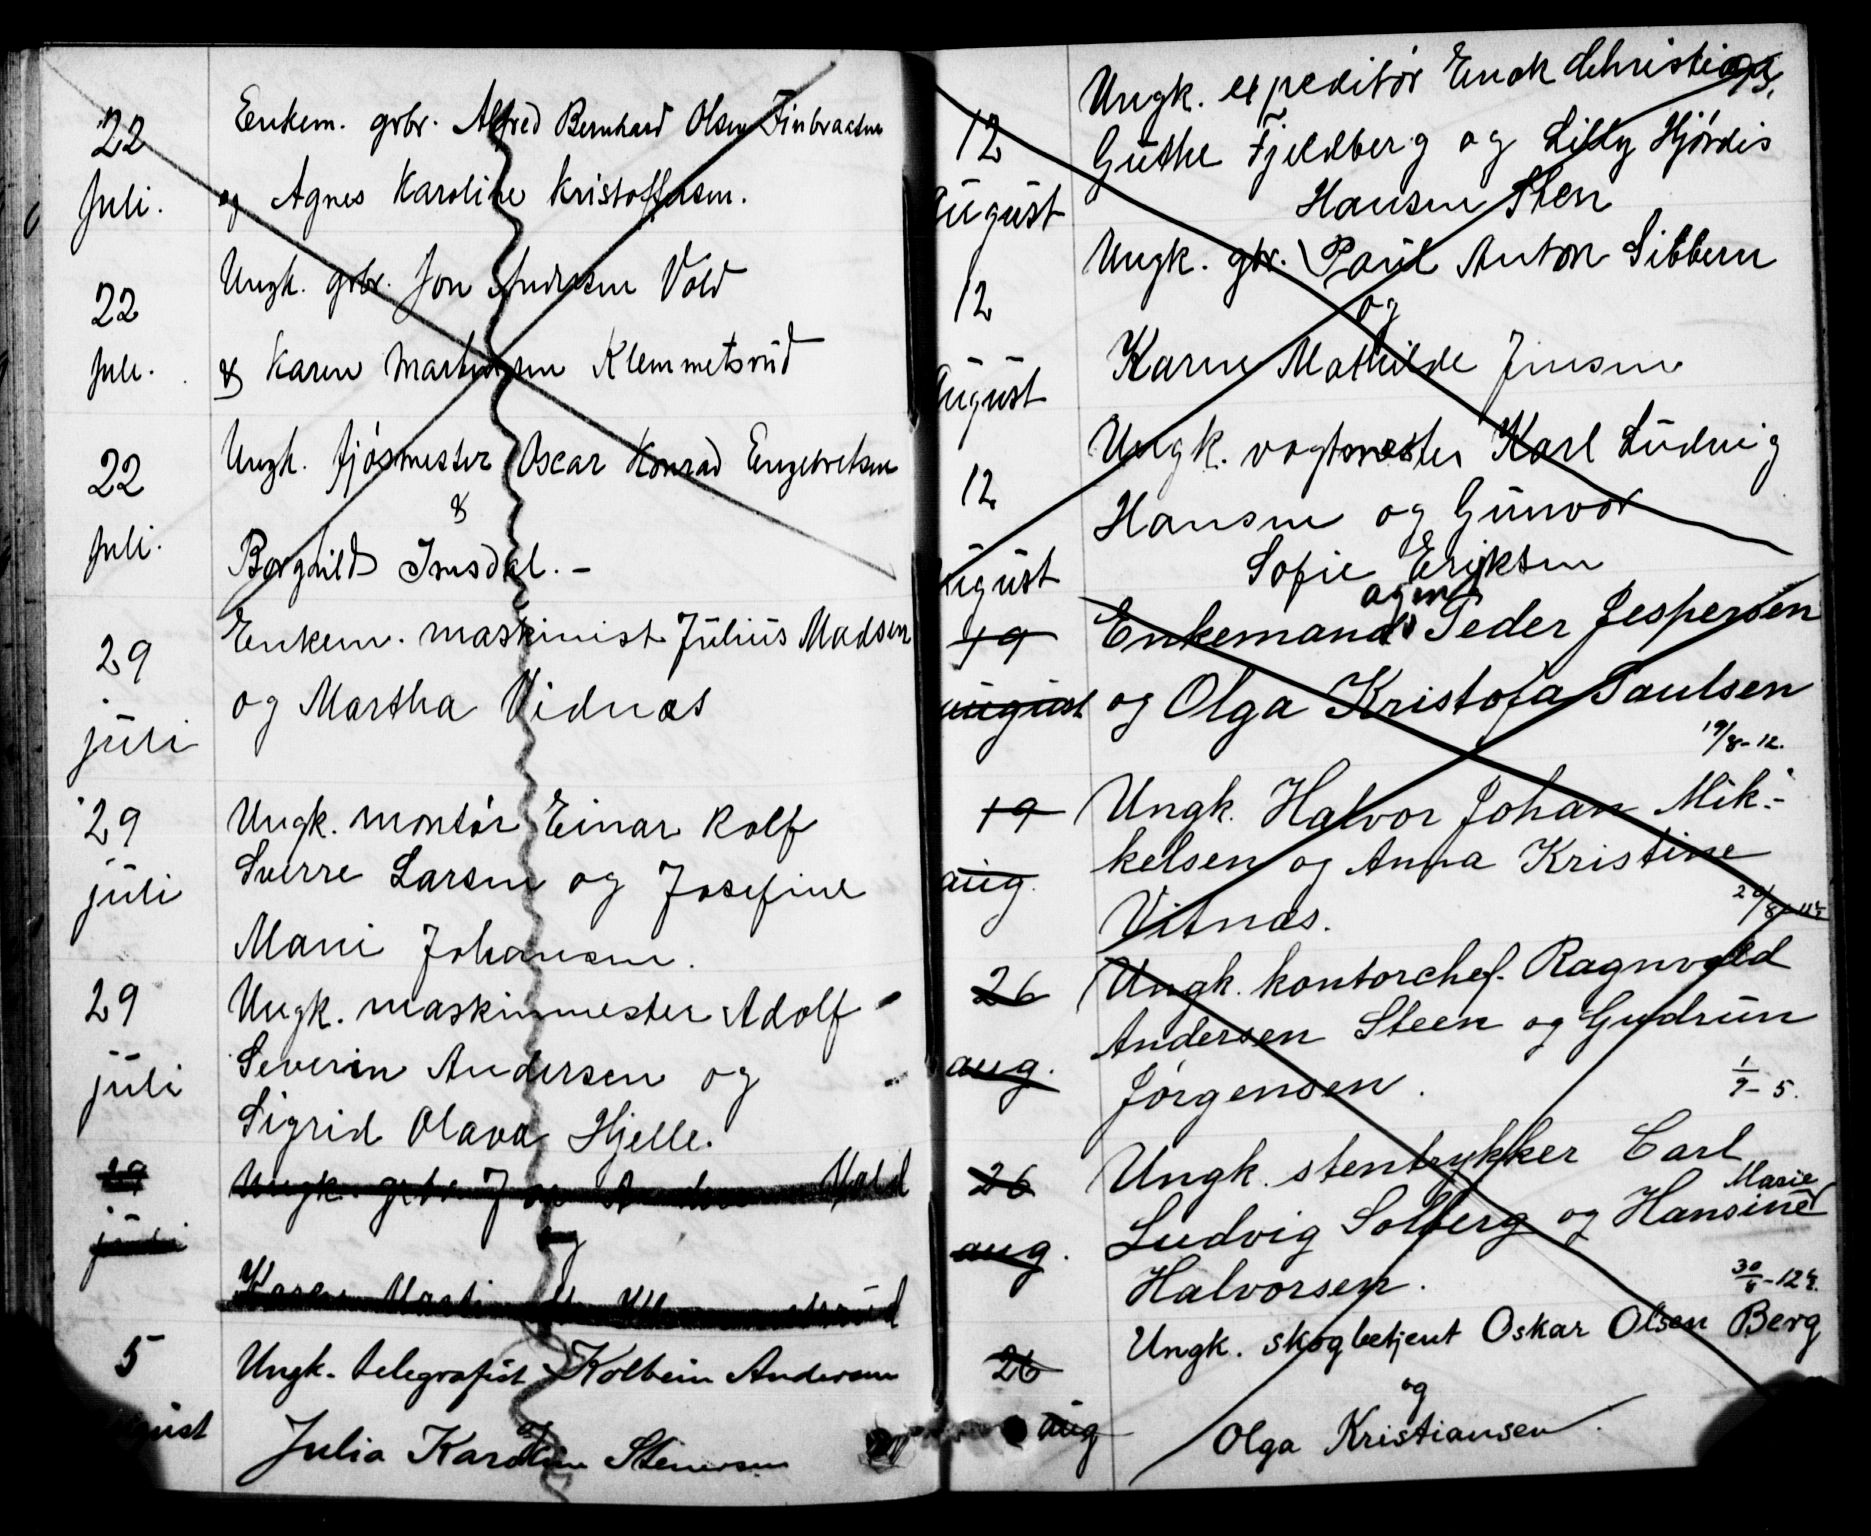 22 Enkem. grbr. Alfred Bernhard Olsen Finbraaten
Juli. og Agnes Karoline Kristoffersen.
22 Ungk. grbr. Jon Andersen Vold
Juli. & Karen Martinsen Klemmetsrud
22 Ungk. fjøsmester Oscar Konrad Engebretsen
&
Juli. Borghild Imsdal. -
29 Enkem. maskinist Julius Madsen
juli og Martha Vidnæs
29 Ungk. montør Einar Rolf
juli Sverre Larsen og Josefine
Marie Johansen.
29 Ungk. maskinmester Adolf
juli Severin Andersen og
Sigrid Olava Hjelle.
29 Ungk. grbr. Jon Andersen Vold
juli og
Karen Klemmetsrud
5 Ungk. telegrafist Kolbein Andersen
og
august Julia Karoline Stenersen
95.
12 Ungk. expeditør Enok Christian
august Guthe Fjeldberg og Lilly Hjørdis
Hansen Sten
12 Ungk. gbr. Paul Anton Sibbern
og
august Karen Mathilde Jensen
12 Ungk. vogtmester Karl Ludvig
Hansen og Gunvor
august Sofie Eriksen
agent
19 Enkemand Peder Jespersen
august og Olga Kristofa Paulsen
19/8 - 12.
19 Ungk. Halvor Johan Mik-
aug. kelsen og Anna Kristine
Vitnæs.
26 Ungk. kontorchef. Ragnvald
Andersen Steen og Gudrun
aug. Jørgensen.
1/9 - 5.
26 Ungk. stentrykker Carl
Marie
aug. Ludvig Solberg og Hansine
Halvorsen.
26 Ungk. skogbetjent Oskar Olsen Berg
og
aug Olga Kristiansen.